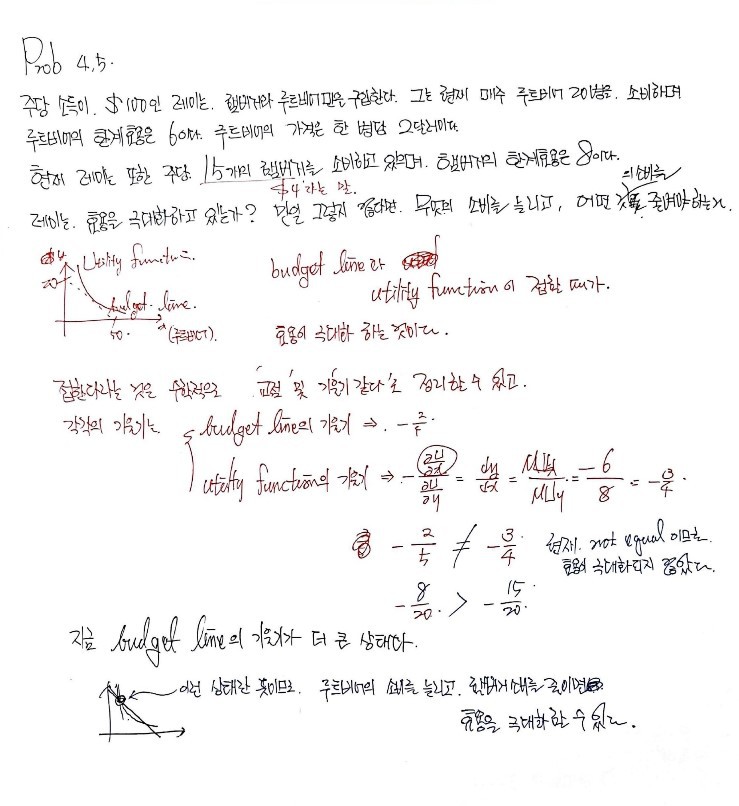 Prob 4.5.
주당 소득이 $100인 레이는 햄버거와 루트비어만을 구입한다. 그는 현재 매주 루트비어 20병을 소비하며
루트비어의 한계효용은 6이다. 루트비어의 가격은 한 병당 2달러이다.
현재 레이는 또한 주당 15개의 햄버거를 소비하고 있으며, 햄버거의 한계효용은 8이다.
$4라는 말.
의 소비를
레이는 효용을 극대화하고 있는가? 만일 그렇지 않다면. 무엇의 소비를 늘리고, 어떤 것 줄여야 하는가.
Utility function.
budget line과
20
utility function이 접할 때가.
budget line.
50.
(루트비어).
효용이 극대화 하는 것이다.
접한다라는 것은 수학적으로 '교점' 및 '기울기 같다'로 정리할 수 있고.
각각의 기울기는
budget line의 기울기 ⇒ -2/5.
utility function의 기울기 ⇒ -(∂U/∂x)/(∂U/∂y) = dy/dx = MUx/MUy = -6/8 = -3/4.
-2/5 ≠ -3/4
현재. not equal 이므로.
효용이 극대화되지 않았다.
-8/20. > -15/20.
지금 budget line의 기울기가 더 큰 상태다.
이런 상태란 뜻이므로. 루트비어의 소비를 늘리고. 햄버거 소비를 줄이면
효용을 극대화할 수 있다.